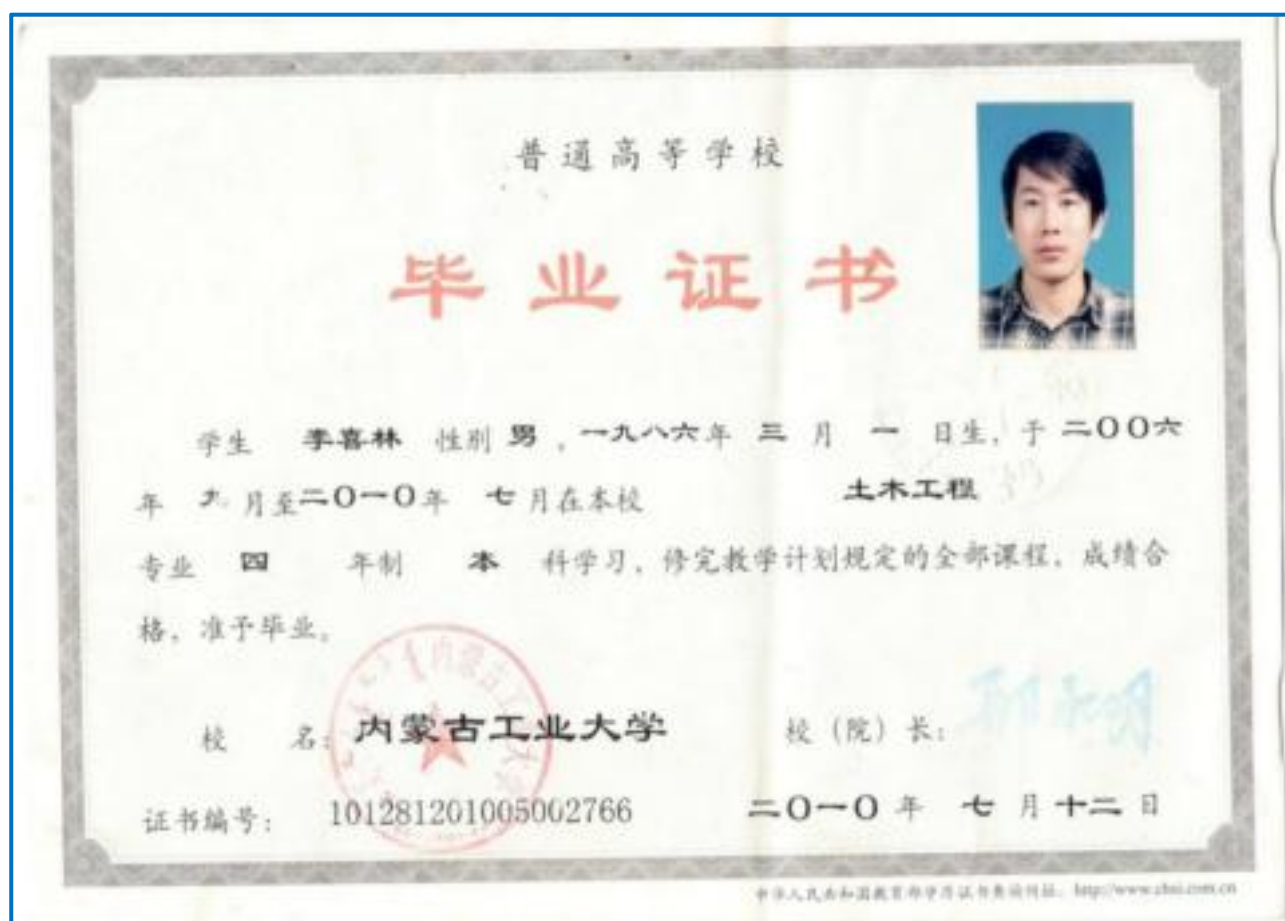 普通高等学校
毕业证书
学生 李喜林 性别 男，一九八六年 三 月 一 日生，于 二〇〇六
年 九 月至二〇一〇年 七 月在本校 土木工程
专业 四 年制 本 科学习，修完教学计划规定的全部课程，成绩合
格，准予毕业。
内蒙古工业大学
校 名：内蒙古工业大学 校（院）长：
证书编号：101281201005002766 二〇一〇 年 七 月 十二 日
中华人民共和国教育部学历证书查询网址：http://www.chsi.com.cn